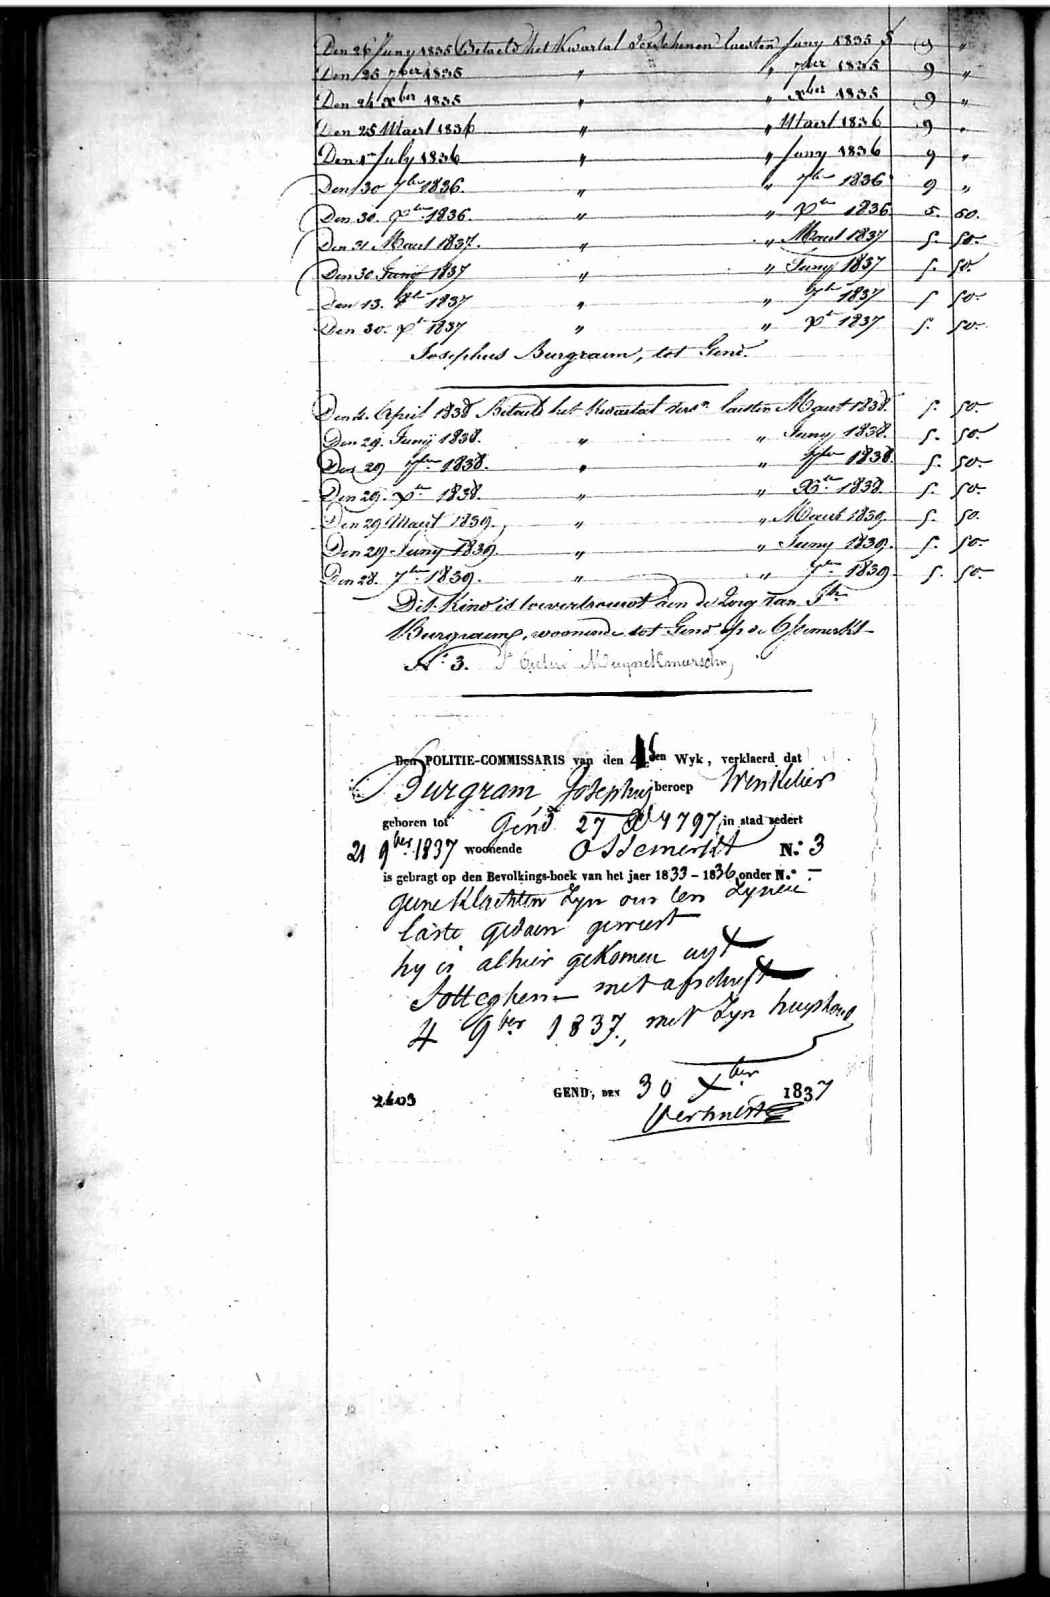 Den 26 Juny 1835 Betaeld het Kwartal Verschenen laesten Juny 1835 f 9 "
Den 25 7ber 1835 " " 7ber 1835 9 "
Den 24 Xber 1835 " " Xber 1835 9 "
Den 25 Maert 1836 " " Maert 1836 9 "
Den 1n July 1836 " " Juny 1836 9 "
Den 30 7ber 1836. " " 7ber 1836 9 "
Den 30. Xber 1836 " " Xber 1836 5. 50.
Den 31 Maert 1837. " " Maert 1837 5. 50.
Den 30 Juny 1837 " " Juny 1837 5. 50.
Den 13. 1837 " " 7ber 1837 5 50.
Den 30. Xr 1837 " " Xr 1837 5. 50.
Josephus Burgraem, tot Gend.
Den April 1838 Betaeld het Kwartal laesten Maert 1838. 5. 50.
Den 29. Junij 1838. " " Juny 1838. 5. 50.
Den 29 7ber 1838. " " 7ber 1838. 5. 50.
Den 29. Xber 1838. " " Xber 1838. 5. 50.
Den 29 Maert 1839. " " Maert 1839 5. 50.
Den 29 Juny 1839. " " Juny 1839. 5. 50.
Den 28. 7ber 1839. " " 7ber 1839 5. 50.
Dit Kind is toevertrouwt aen de Zorg van Jh.
Burgraeme, woonende tot Gend op de Ossemerkt
N.º 3.
Den POLITIE-COMMISSARIS van den den Wyk, verklaerd dat
Burgram Josephus beroep Winkelier
geboren tot Gend 27 Xr 1797, in stad zedert
21 9ber 1837 woonende Ossemerkt N.º 3
is gebragt op den Bevolkings-boek van het jaer 1833 - 1836, onder N.º -
geene Klachten Zyn ons ten Zynen
laste gedaen geweest
hy is alhier gekomen uyt
Sotteghem met afschrift
4 9ber 1837, met Zyn huyshoud
2603 GEND, DEN 30 Xber 1837